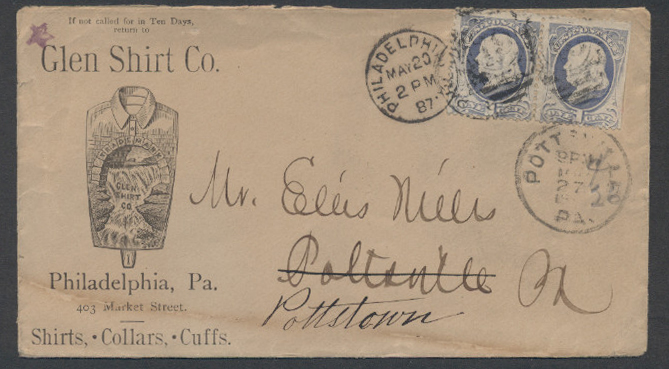 If not called for in Ten Days,
return to
Glen Shirt Co.
TRADE MARK
GLEN
SHIRT
CO
1
Philadelphia, Pa.
403 Market Street.
Shirts, • Collars, • Cuffs.
PHILADELPHIA
MAY 20
2 PM
87
POTTSVILLE
PA.
Mr. Ellis Mills
Pottsville Pa
Pottstown